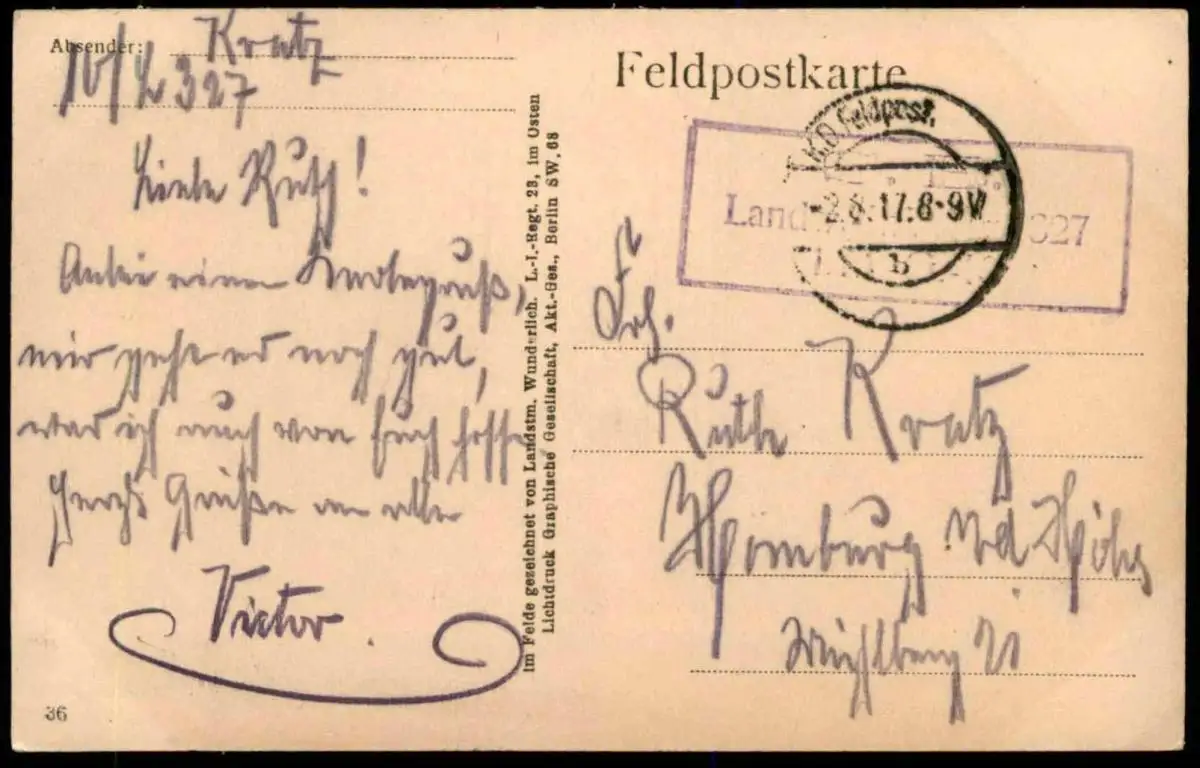 Absender: Kratz
10/L 327
Liebe Ruth!
Anbei einen
mir geht es noch gut,
was ich auch von Euch hoffe
Herzl. Grüße an alle
Victor
36
Im Felde gezeichnet von Landstm. Wunderlich. L.-I.-Regt. 23, im Osten
Lichtdruck Graphische Gesellschaft, Akt.-Ges., Berlin SW. 68
Feldpostkarte
K.D. Feldpost.
-2.8.17.8-9V
b
Land 327
Frl.
Ruth Kratz
Homburg v d Höhe
Mühlberg 21